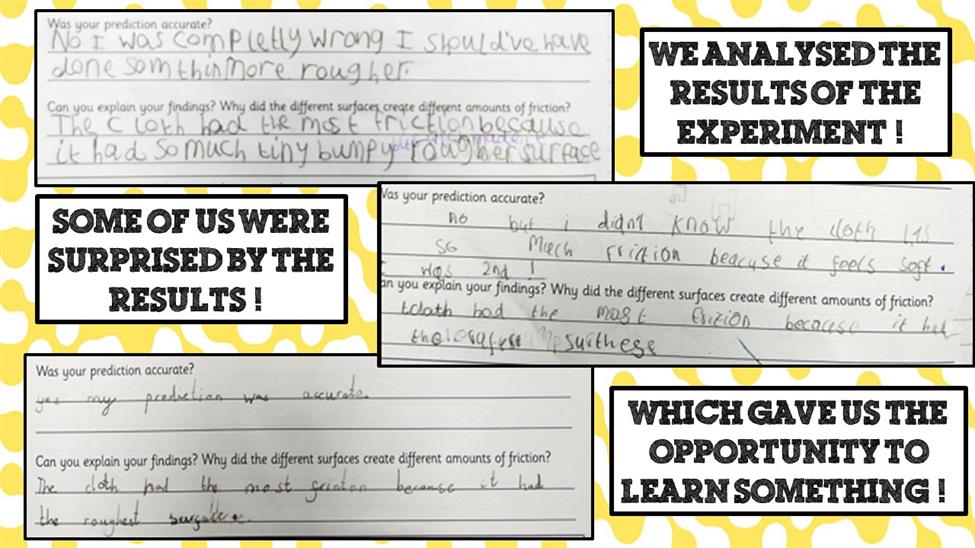 Was your prediction accurate?
No I was completly wrong I should've have
done somthin more rougher.
Can you explain your findings? Why did the different surfaces create different amounts of friction?
The cloth had the most friction because
it had so much tiny bumpy rougher surface
WE ANALYSED THE
RESULTS OF THE
EXPERIMENT !
SOME OF US WERE
SURPRISED BY THE
RESULTS !
Was your prediction accurate?
no but i didn't know the cloth
so much friction beacuse it feels soft.
was 2nd
an you explain your findings? Why did the different surfaces create different amounts of friction?
cloth had the most because it had
the
Was your prediction accurate?
yes my prediction was accurate.
Can you explain your findings? Why did the different surfaces create different amounts of friction?
The cloth had the most because it had
the roughest
WHICH GAVE US THE
OPPORTUNITY TO
LEARN SOMETHING !